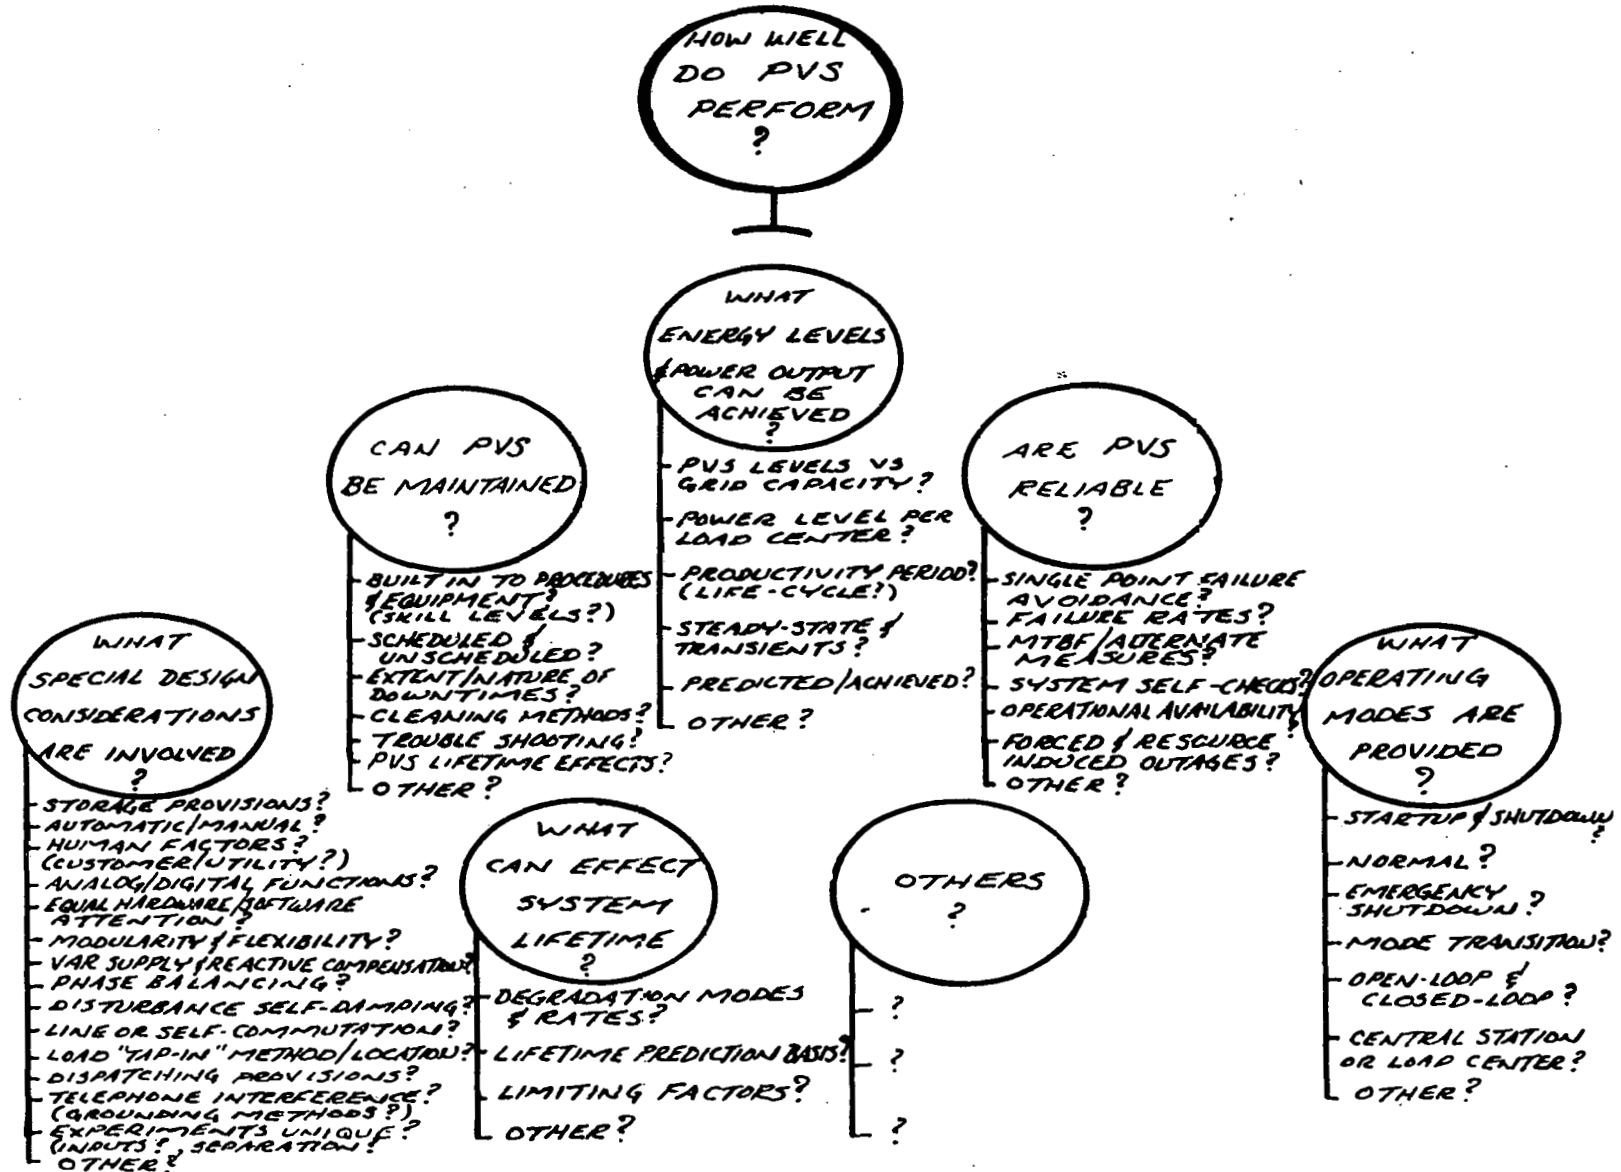 HOW WELL
DO PVS
PERFORM
?
WHAT
ENERGY LEVELS
& POWER OUTPUT
CAN BE
ACHIEVED
?
PVS LEVELS VS
GRID CAPACITY?
POWER LEVEL PER
LOAD CENTER?
PRODUCTIVITY PERIOD?
(LIFE-CYCLE?)
STEADY-STATE &
TRANSIENTS?
PREDICTED/ACHIEVED?
OTHER?
CAN PVS
BE MAINTAINED
?
BUILT IN TO PROCEDURES
& EQUIPMENT?
(SKILL LEVELS?)
SCHEDULED &
UNSCHEDULED?
EXTENT/NATURE OF
DOWNTIMES?
CLEANING METHODS?
TROUBLE SHOOTING?
PVS LIFETIME EFFECTS?
OTHER?
ARE PVS
RELIABLE
?
SINGLE POINT FAILURE
AVOIDANCE?
FAILURE RATES?
MTBF/ALTERNATE
MEASURES?
SYSTEM SELF-CHECKS?
OPERATIONAL AVAILABILITY
?
FORCED & RESOURCE
INDUCED OUTAGES?
OTHER?
WHAT
SPECIAL DESIGN
CONSIDERATIONS
ARE INVOLVED
?
STORAGE PROVISIONS?
AUTOMATIC/MANUAL?
HUMAN FACTORS?
(CUSTOMER/UTILITY?)
ANALOG/DIGITAL FUNCTIONS?
EQUAL HARDWARE/SOFTWARE
ATTENTION?
MODULARITY & FLEXIBILITY?
VAR SUPPLY & REACTIVE COMPENSATION?
PHASE BALANCING?
DISTURBANCE SELF-DAMPING?
LINE OR SELF-COMMUTATION?
LOAD "TAP-IN" METHOD/LOCATION?
DISPATCHING PROVISIONS?
TELEPHONE INTERFERENCE?
(GROUNDING METHODS?)
EXPERIMENTS UNIQUE?
(INPUTS?, SEPARATION?
OTHER?
WHAT
CAN EFFECT
SYSTEM
LIFETIME
?
DEGRADATION MODES
& RATES?
LIFETIME PREDICTION BASIS?
LIMITING FACTORS?
OTHER?
OTHERS
?
?
?
?
WHAT
OPERATIING
MODES ARE
PROVIDED
?
STARTUP & SHUTDOWN
?
NORMAL?
EMERGENCY
SHUTDOWN?
MODE TRANSITION?
OPEN-LOOP &
CLOSED-LOOP?
CENTRAL STATION
OR LOAD CENTER?
OTHER?